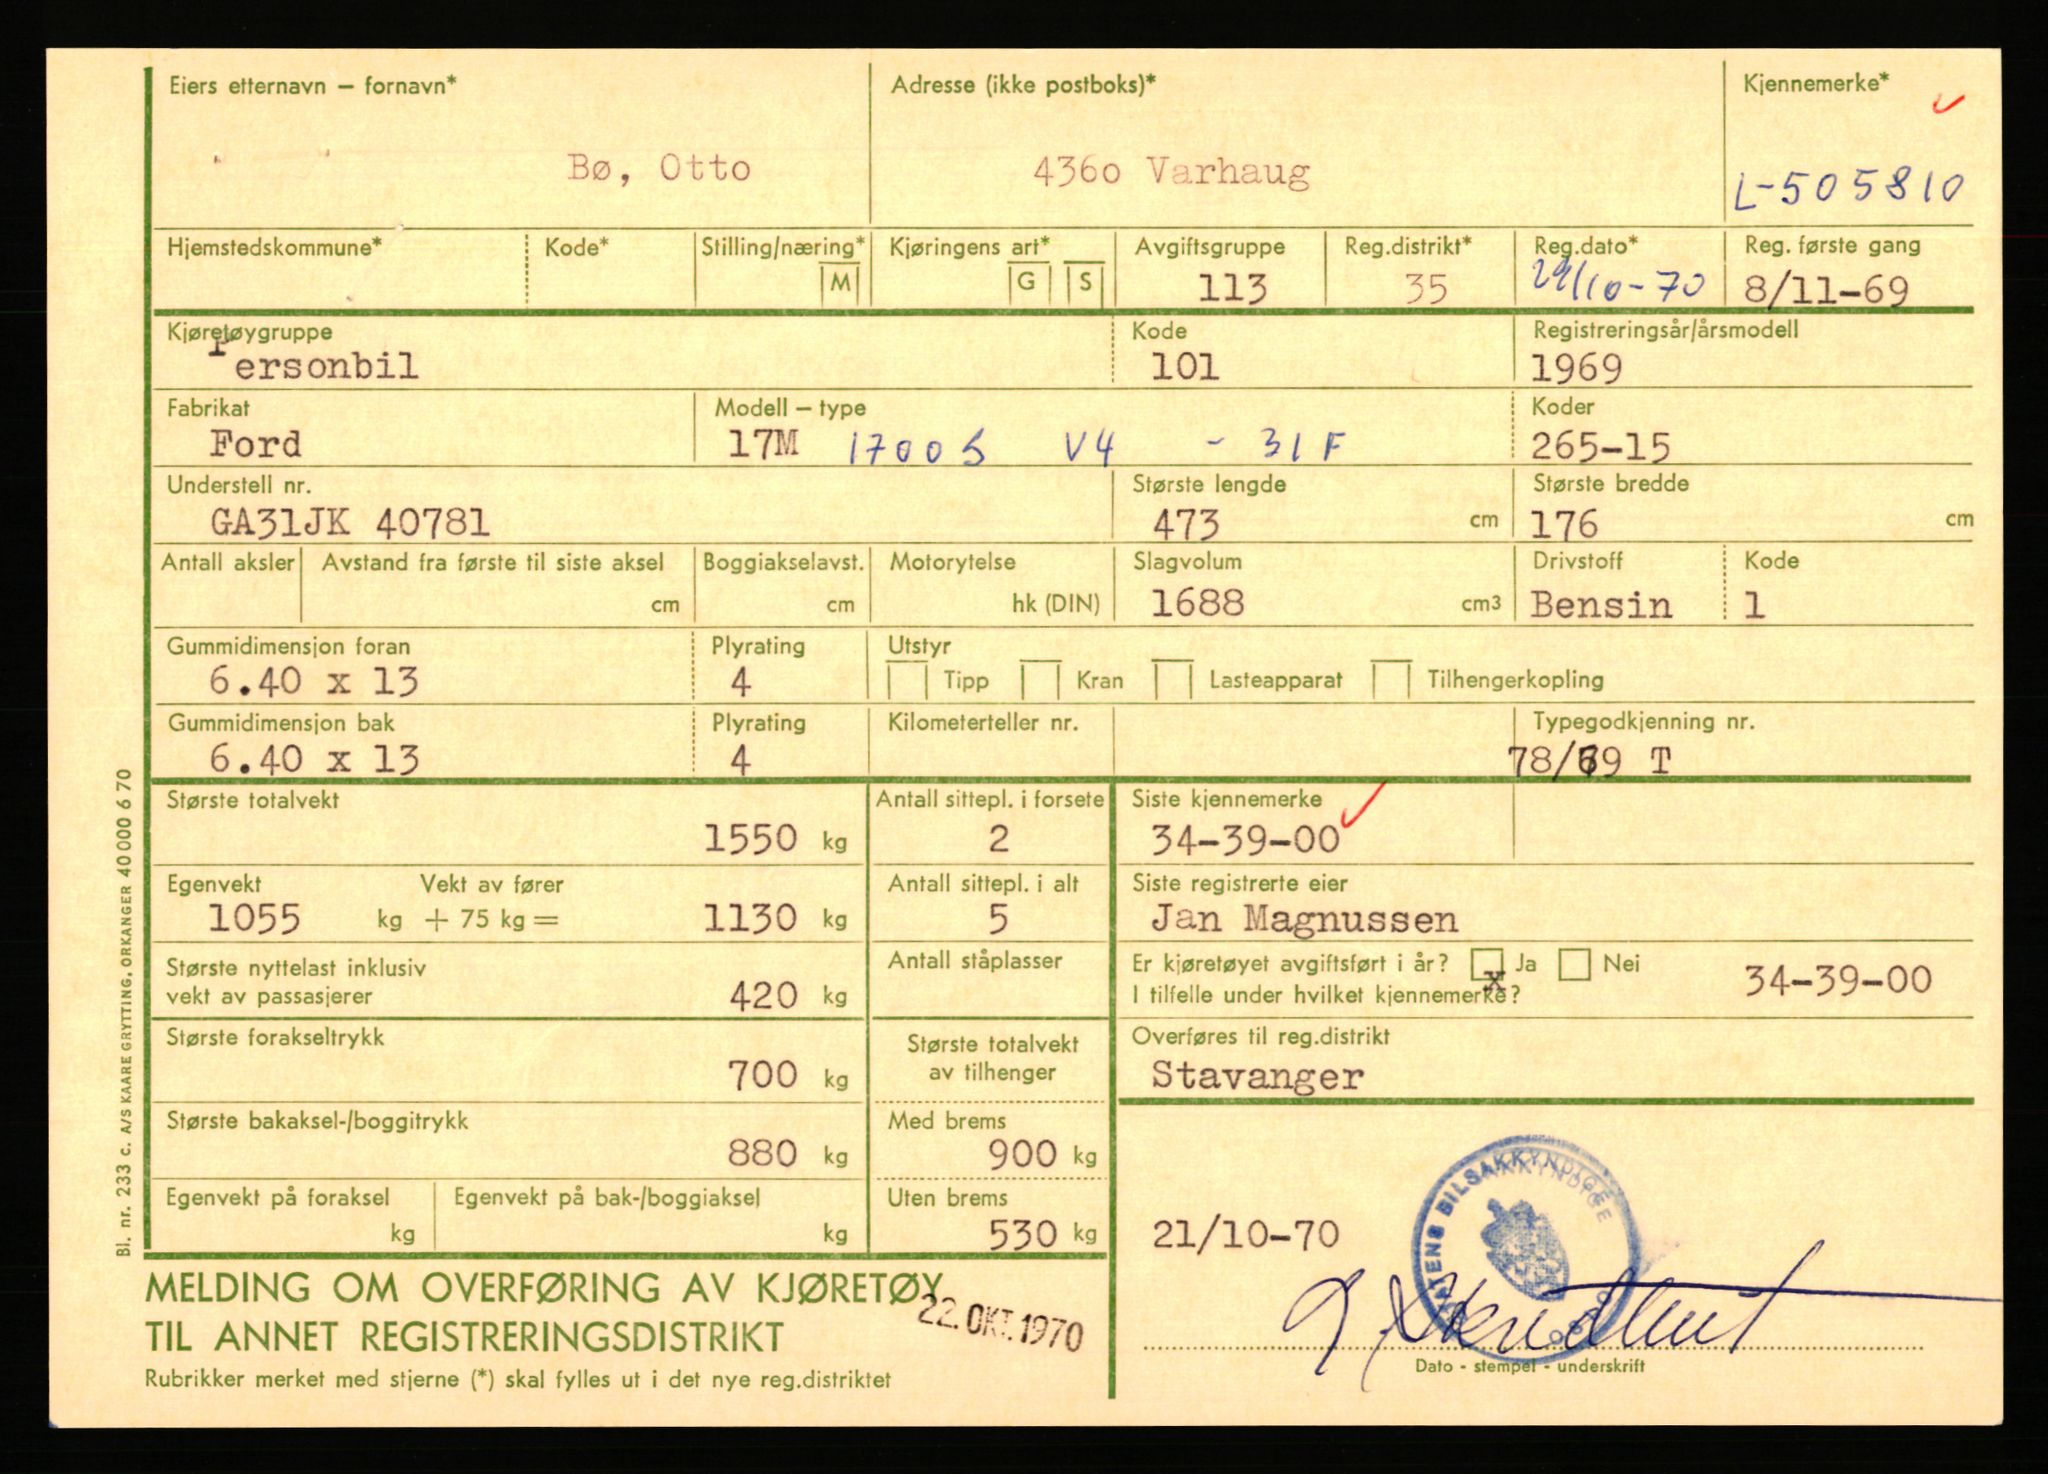 Eiers etternavn – fornavn* Adresse (ikke postboks)* Kjennemerke*
Bø, Otto 4360 Varhaug L-505810
Hjemstedskommune* Kode* Stilling/næring* Kjøringens art* Avgiftsgruppe Reg.distrikt* Reg.dato* Reg. første gang
M G S 113 35 29/10-70 8/11-69
Kjøretøygruppe Kode Registreringsår/årsmodell
Personbil 101 1969
Fabrikat Modell – type Koder
Ford 17M 1700S V4 - 31F 265-15
Understell nr. Største lengde Største bredde
GA31JK 40781 473 cm 176 cm
Antall aksler Avstand fra første til siste aksel Boggiakselavst. Motorytelse Slagvolum Drivstoff Kode
cm cm hk (DIN) 1688 cm3 Bensin 1
Gummidimensjon foran Plyrating Utstyr
6.40 x 13 4 Tipp Kran Lasteapparat Tilhengerkopling
Gummidimensjon bak Plyrating Kilometerteller nr. Typegodkjenning nr.
6.40 x 13 4 78/69 T
Største totalvekt Antall sittepl. i forsete Siste kjennemerke
1550 kg 2 34-39-00
Egenvekt Vekt av fører Antall sittepl. i alt Siste registrerte eier
1055 kg + 75 kg = 1130 kg 5 Jan Magnussen
Største nyttelast inklusiv Antall ståplasser Er kjøretøyet avgiftsført i år? Ja Nei
vekt av passasjerer 420 kg I tilfelle under hvilket kjennemerke? x 34-39-00
Største forakseltrykk Største totalvekt Overføres til reg.distrikt
700 kg av tilhenger Stavanger
Største bakaksel-/boggitrykk Med brems
880 kg 900 kg
Egenvekt på foraksel Egenvekt på bak-/boggiaksel Uten brems
kg kg 530 kg 21/10-70
STATENS BILSAKKYNDIGE
MELDING OM OVERFØRING AV KJØRETØY
22. OKT. 1970
TIL ANNET REGISTRERINGSDISTRIKT
Dato - stempel - underskrift
Rubrikker merket med stjerne (*) skal fylles ut i det nye reg.distriktet
Bl. nr. 233 c. A/S KAARE GRYTTING, ORKANGER 40000 6 70